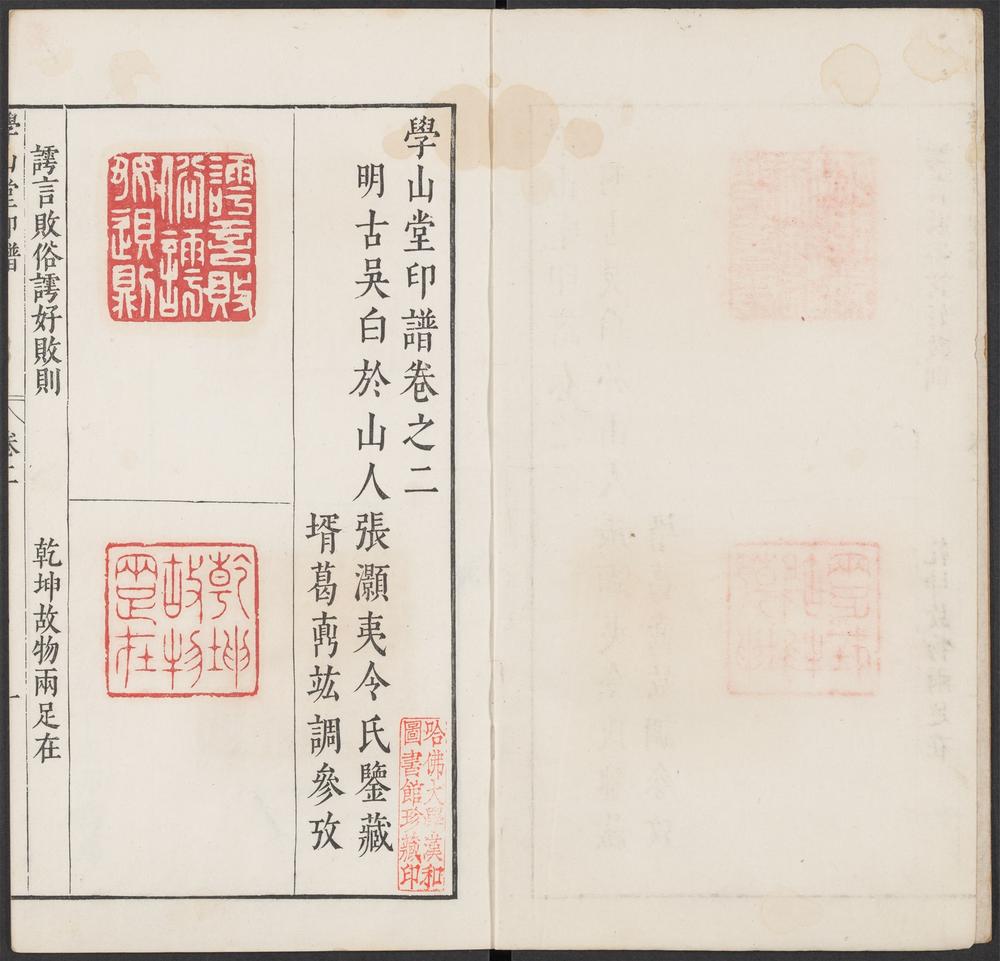 學山堂印譜卷之二
明古吳白於山人張灝夷令氏鑒藏
壻葛鼒竑調參攷
哈佛大學漢和
圖書館珍藏印
謣言敗俗謣好敗則
乾坤故物兩足在
學山堂印譜
卷二
一